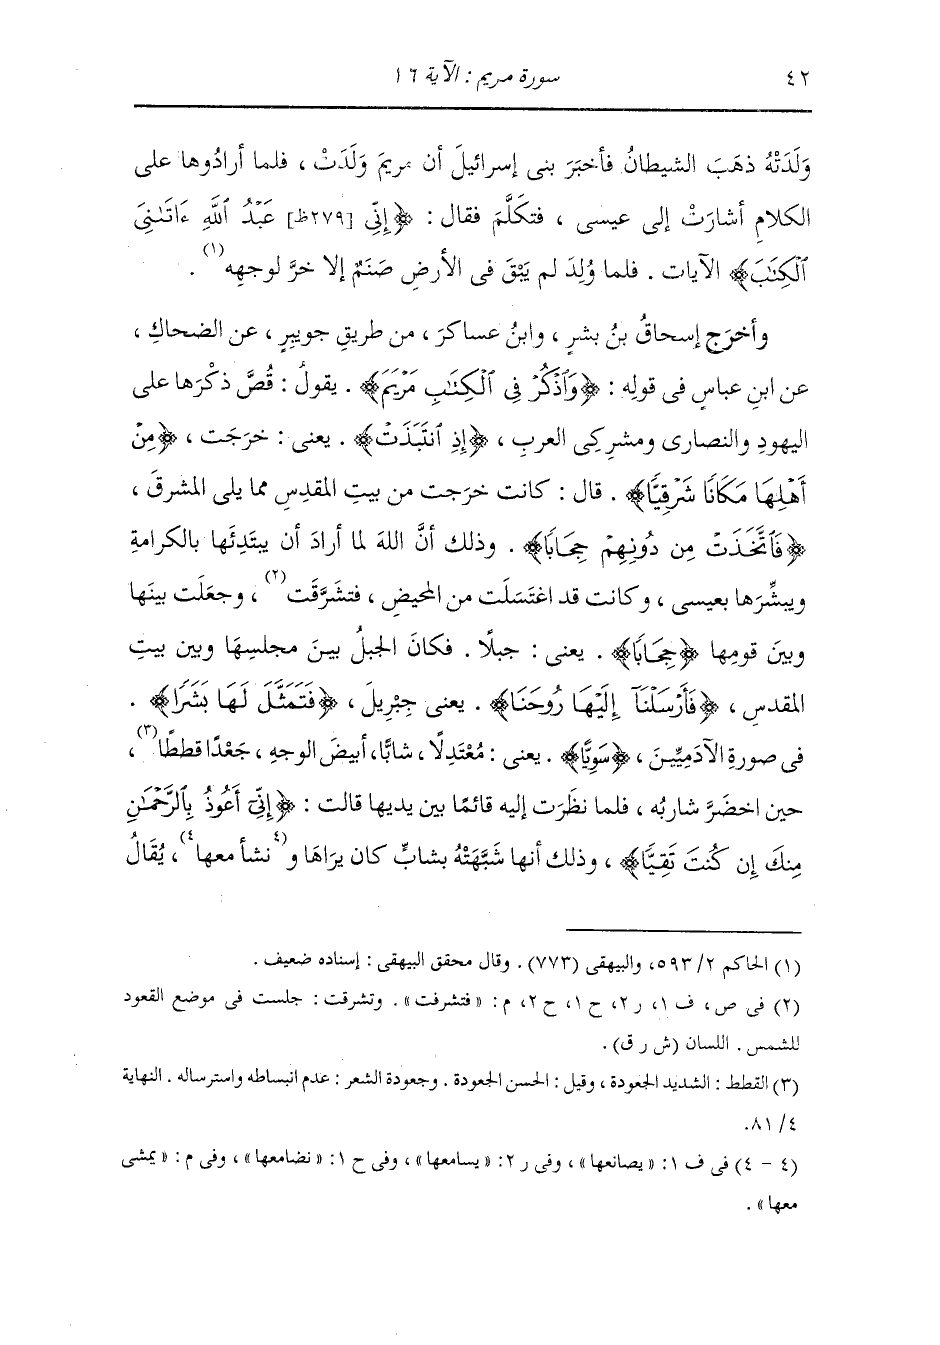 ٤٢ سورة مريم : الآية ١٦
وَلَدَتْهُ ذهَبَ الشيطانُ فأخبَرَ بنى إسرائيلَ أن مريمَ وَلَدَتْ ، فلما أرادُوها على
الكلامِ أشارَتْ إلى عيسى ، فتكلَّم فقال : ﴿إِنِّي [٢٧٩ظ] عَبْدُ ٱللَّهِ ءَاتَىٰنِيَ
ٱلْكِتَٰبَ﴾ الآيات . فلما وُلِدَ لم يَبْقَ فى الأرضِ صَنَمٌ إلا خرَّ لوجهِه(١) .
وأخرَج إسحاقُ بنُ بشرٍ ، وابنُ عساكرَ ، من طريقِ جويبرٍ ، عن الضحاكِ ،
عن ابنِ عباسٍ فى قولِه : ﴿وَٱذْكُرْ فِى ٱلْكِتَٰبِ مَرْيَمَ﴾ . يقولُ : قُصَّ ذكْرَها على
اليهودِ والنصارى ومشركِى العربِ ، ﴿إِذِ ٱنتَبَذَتْ﴾ . يعنى : خرَجَت ، ﴿مِنْ
أَهْلِهَا مَكَانًا شَرْقِيًّا﴾ . قال : كانت خرَجت من بيتِ المقدسِ مما يلى المشرقَ ،
﴿فَٱتَّخَذَتْ مِن دُونِهِمْ حِجَابًا﴾ . وذلك أنَّ اللهَ لما أرادَ أن يبتَدِئَها بالكرامةِ
ويبشِّرَها بعيسى ، وكانت قد اغتَسَلَت من المحيضِ ، فتشرَّقَت(٢) ، وجعَلَت بينَها
وبينَ قومِها ﴿حِجَابًا﴾ . يعنى : جبلًا . فكانَ الجبلُ بينَ مجلسِهَا وبين بيتِ
المقدسِ ، ﴿فَأَرْسَلْنَآ إِلَيْهَا رُوحَنَا﴾ . يعنى جِبْرِيلَ ، ﴿فَتَمَثَّلَ لَهَا بَشَرًا﴾ .
فى صورةِ الآدَمِيِّينَ ، ﴿سَوِيًّا﴾ . يعنى : مُعْتَدِلًا ، شابًّا، أبيضَ الوجهِ ، جَعْدًا قططًا(٣) ،
حين اخضَرَّ شاربُه ، فلما نظَرَت إليه قائمًا بين يديها قالت : ﴿إِنِّيٓ أَعُوذُ بِٱلرَّحْمَٰنِ
مِنكَ إِن كُنتَ تَقِيًّا﴾ ، وذلك أنها شَبَّهَتْهُ بشابٍّ كان يرَاهَا و(٤نشأ معها٤) ، يُقَالُ
(١) الحاكم ٢/ ٥٩٣، والبيهقى (٧٧٣) . وقال محقق البيهقى : إسناده ضعيف .
(٢) فى ص ، ف ١، ر ٢، ح ١، ح ٢، م : « فتشرفت » . وتشرقت : جلست فى موضع القعود
للشمس . اللسان (ش ر ق) .
(٣) القطط : الشديد الجعودة ، وقيل : الحسن الجعودة . وجعودة الشعر : عدم انبساطه واسترساله . النهاية
٤/ ٨١.
(٤ - ٤) فى ف ١: « يصانعها » ، وفى ر ٢: « يسامعها » ، وفى ح ١: « نضامعها » ، وفى م : « يمشى
معها » .